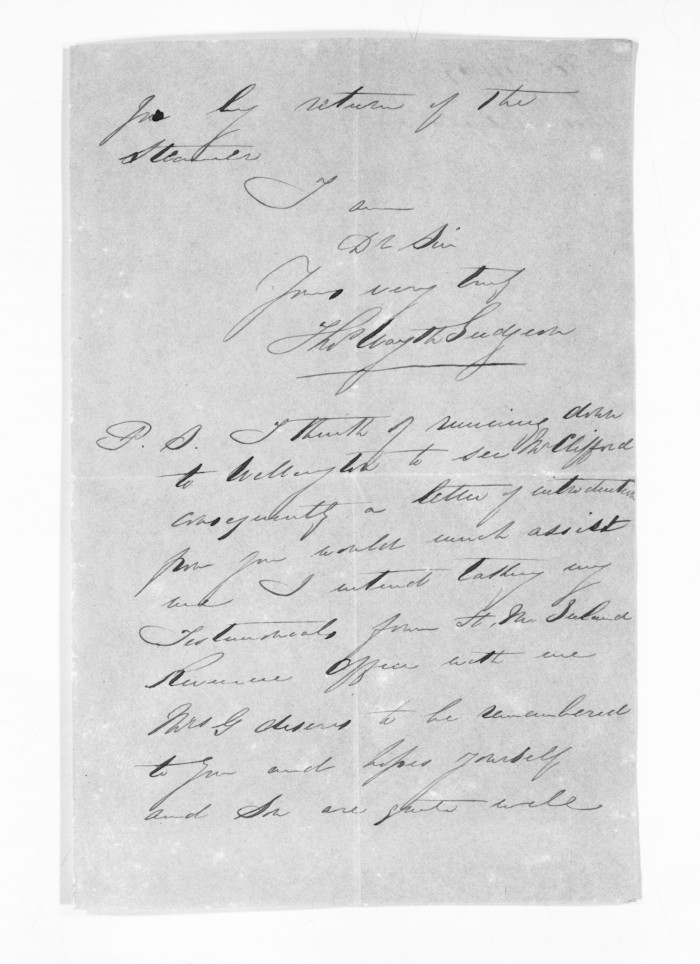 you by return of the
Steamer
I am
Dr Sir
Yours very truly
Thos Wayth Gudgeon
P. S. I think of running down
to Wellington to see Mr Clifford
consequently a letter of introduction
from you would much assist
me I intend taking my
Testimonials from H. M. Inland
Revenue Office with me
Mrs G desires to be remembered
to you and hopes yourself
and Son are quite well